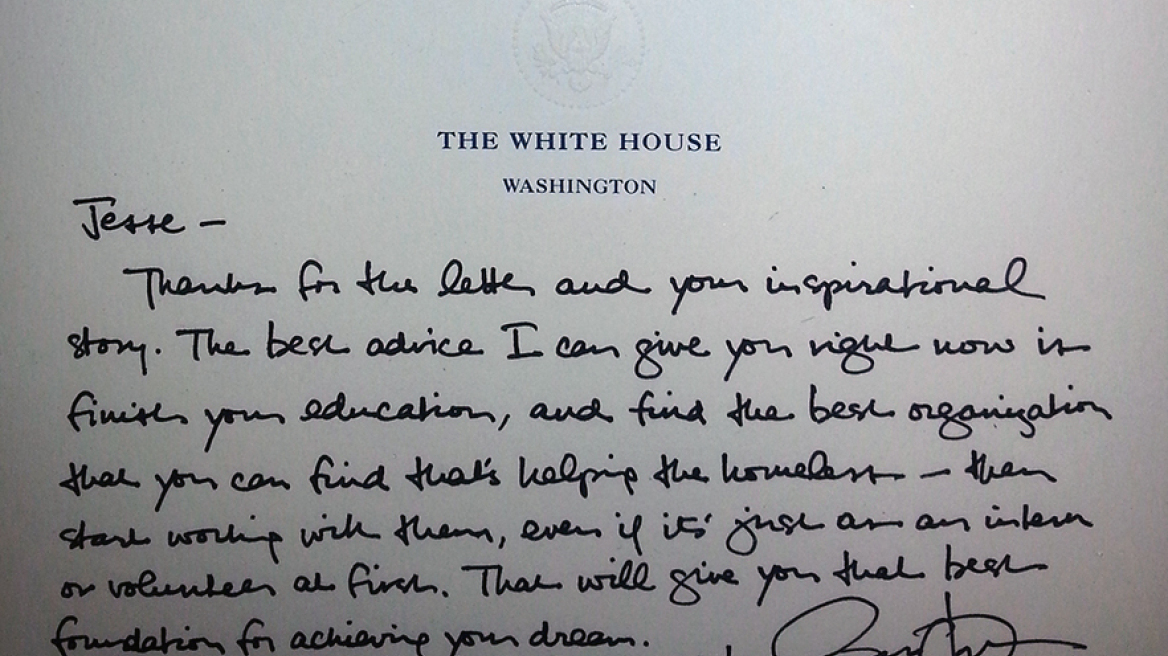 THE WHITE HOUSE
WASHINGTON
Jesse –
Thanks for the letter and your inspirational
story. The best advice I can give you right now is
finish your education, and find the best organization
that you can find that's helping the homeless – then
start working with them, even if it's just as an intern
or volunteer at first. That will give you that best
foundation for achieving your dream.